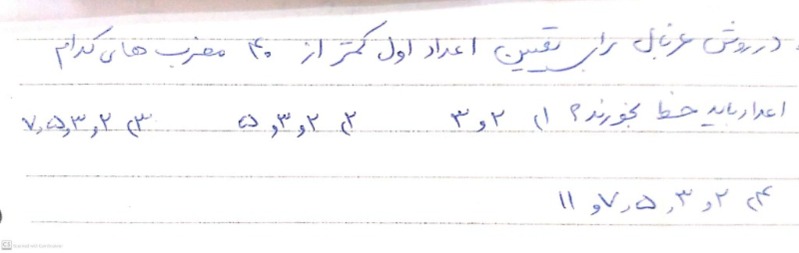 در روش غربال برای تعیین اعداد اول کمتر از ۴۰ مضرب های کدام
اعداد باید خط بخورند؟ ۱) ۲ و ۳ ۲) ۲ و ۳ و ۵ ۳) ۲ و ۳ و ۵ و ۷
۴) ۲ و ۳ و ۵ و ۷ و ۱۱